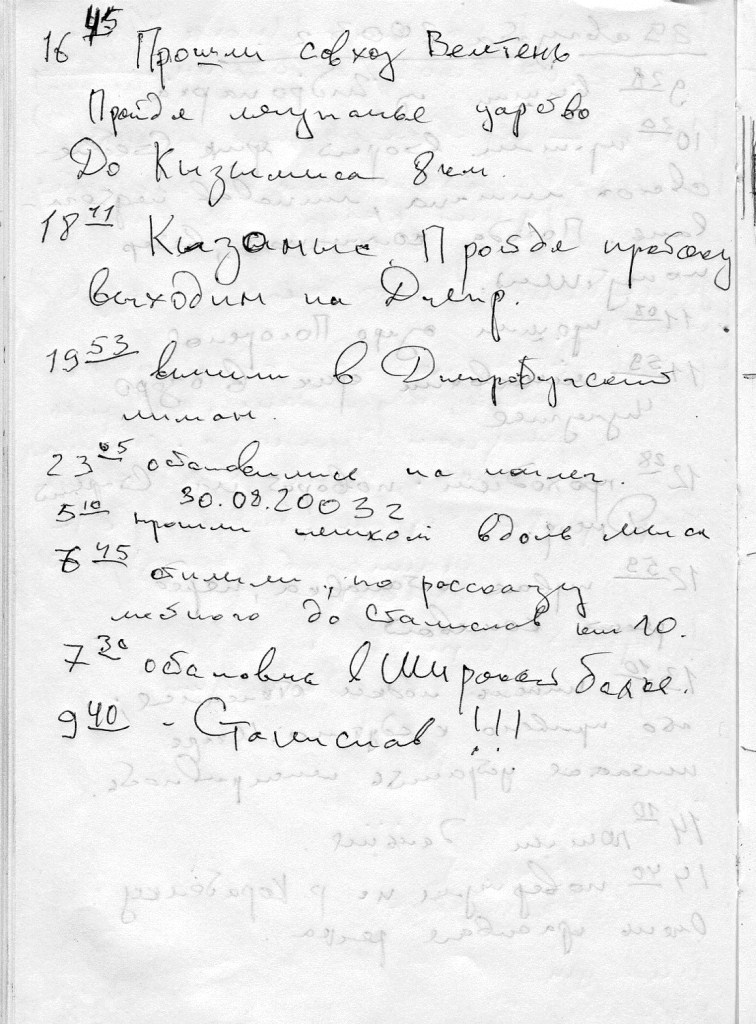 16 45 Прошли совхоз Велетень
Пройдя лягушачье царство
До Кизымиса 8 км.
18 41 Кызомыс. Пройдя протоку
выходим на Днепр.
19 53 вышли в Днепробугский
лиман.
23 05 остановились на ночлег.
30.08.2003 г
5 10 прошли пешком вдоль мыса
6 45 отплыли, по рассказу
местного до Станислав км 10.
7 30 остановка в Широкой балке.
9 40 - Станислав !!!